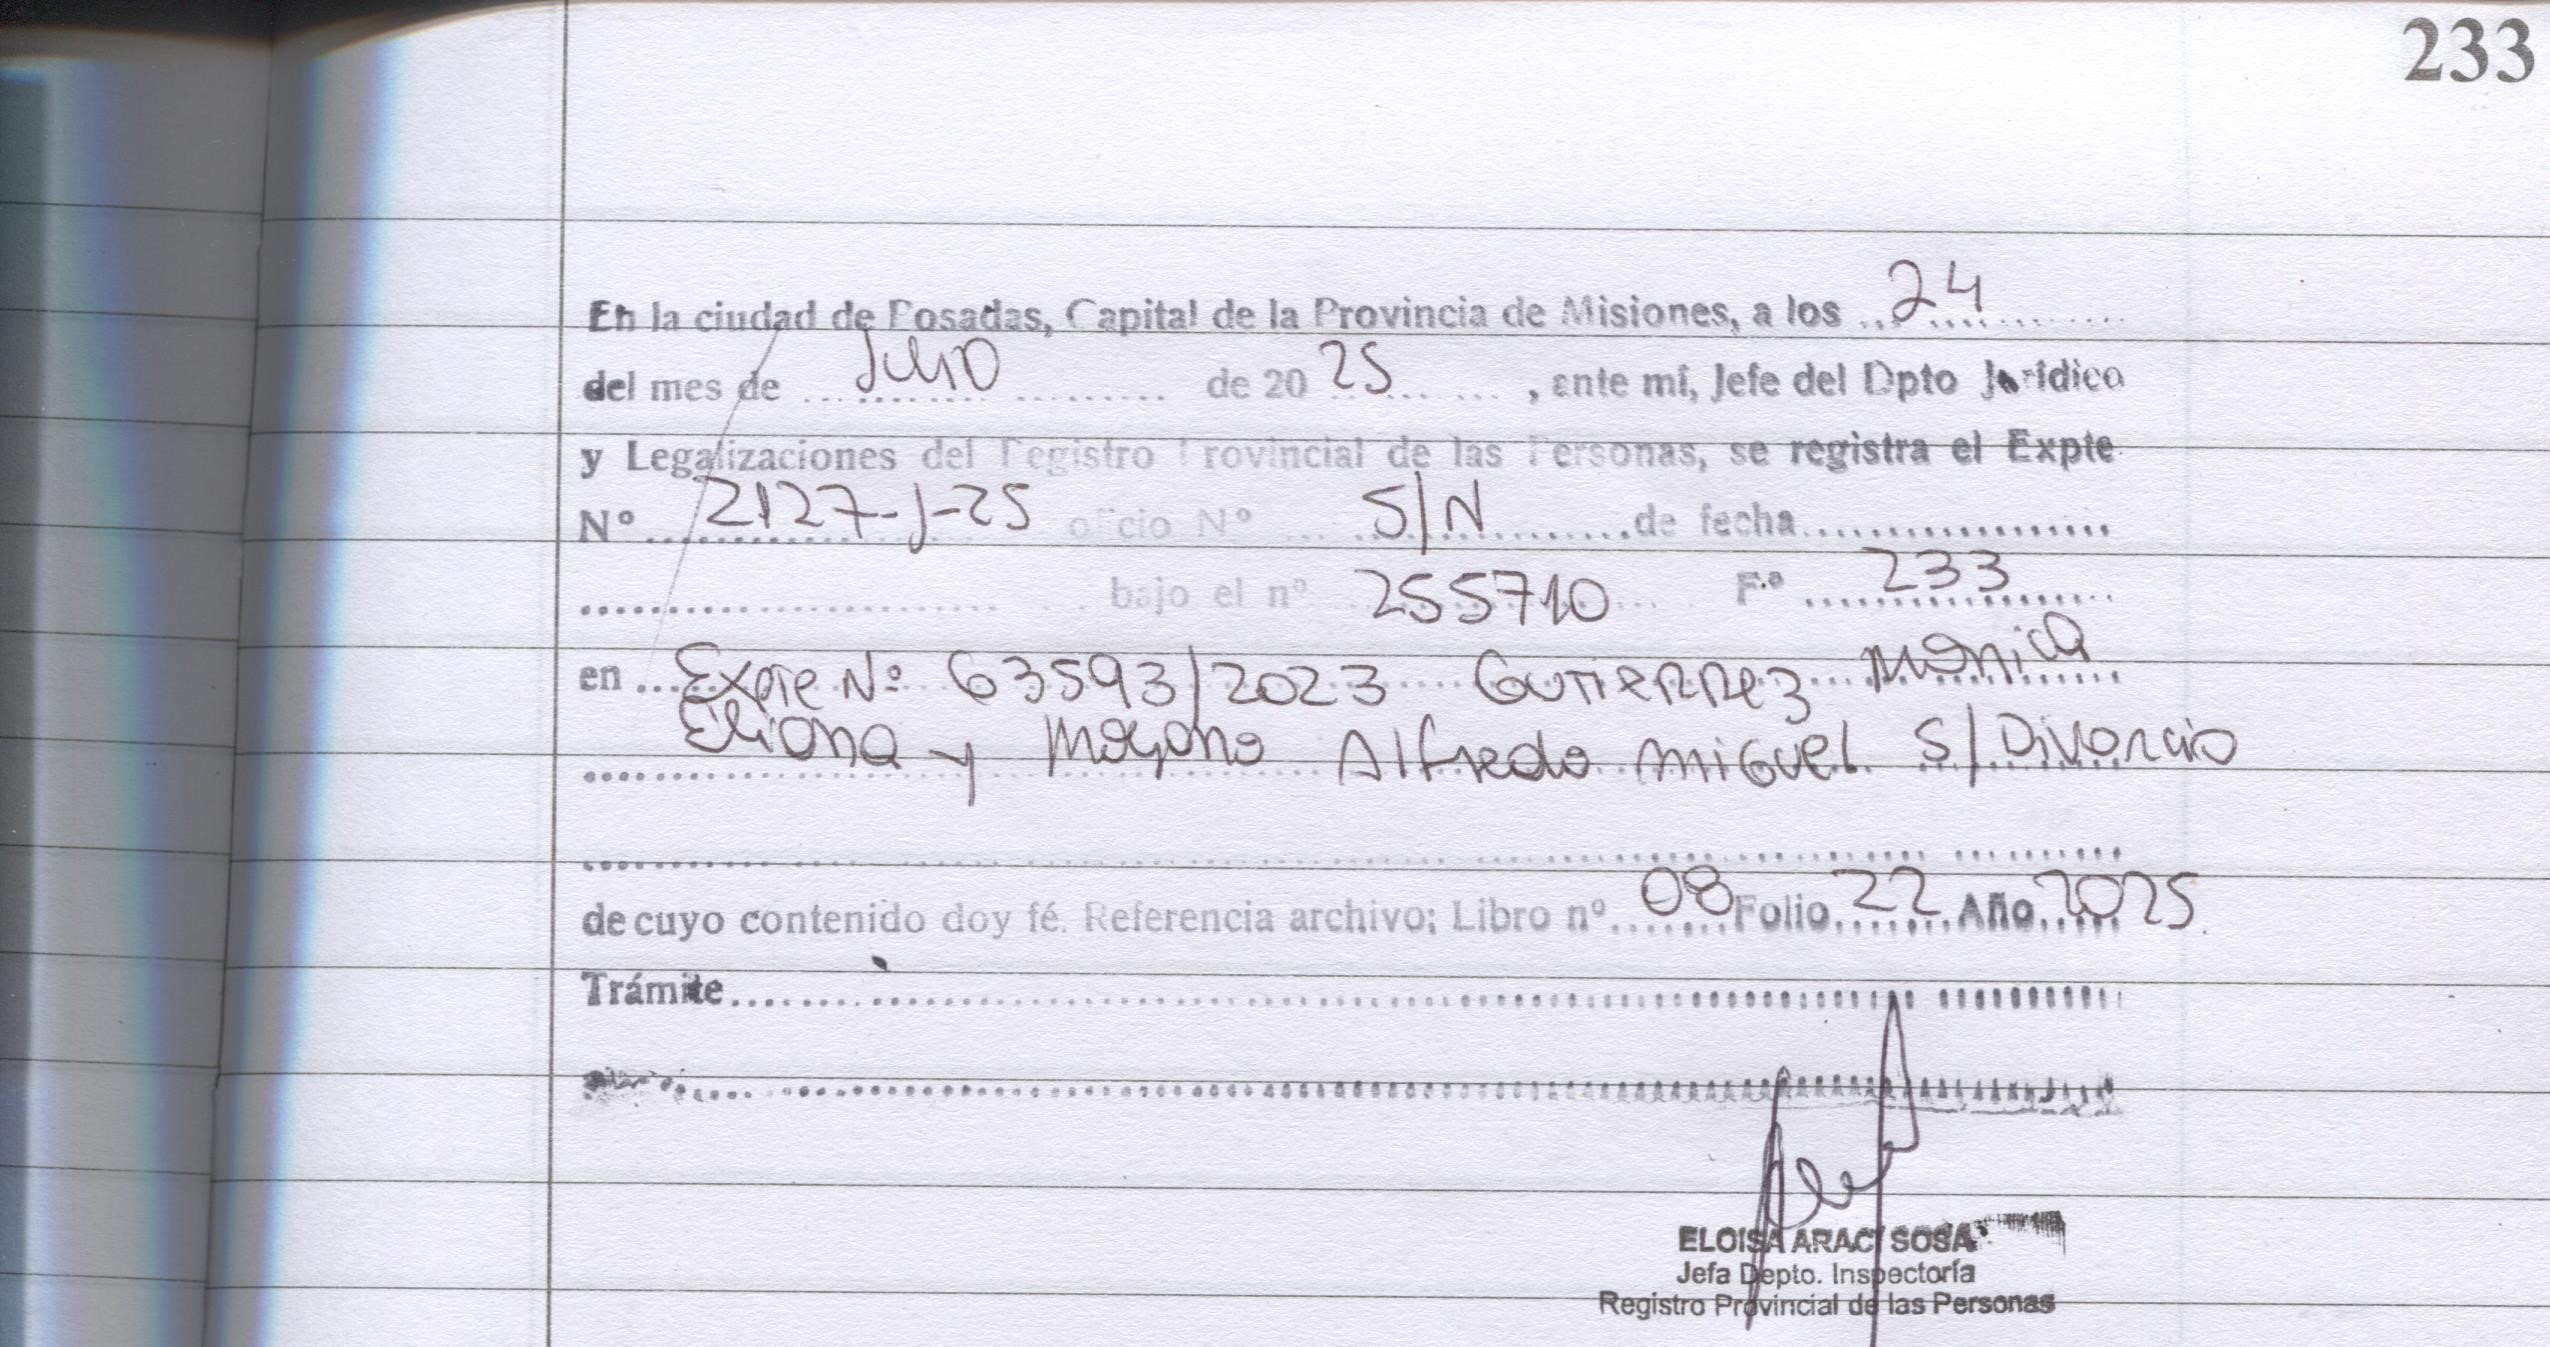 233
En la ciudad de Posadas, Capital de la Provincia de Misiones, a los 24
del mes de Julio de 2025, ante mí, Jefe del Dpto Jurídico
y Legalizaciones del Registro Provincial de las Personas, se registra el Expte
Nº 2127-J-25 oficio Nº S/N de fecha
bajo el nº 255710 Fº 233
en Expte Nº 63593/2023 Gutierrez Monica
Eliana y Moyano Alfredo Miguel S/Divorcio
de cuyo contenido doy fé. Referencia archivo; Libro nº 08 Folio 22 Año 2025
Trámite
ELOISA ARACI SOSA
Jefa Depto. Inspectoría
Registro Provincial de las Personas